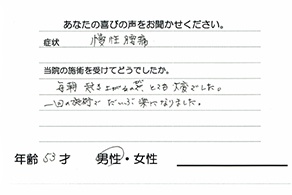 あなたの喜びの声をお聞かせください。
症状 慢性腰痛
当院の施術を受けてどうでしたか。
毎朝 起き上がるの が とても 大変でした。
一回の施術で だいぶ 楽になりました。
年齢 53 才 男性・女性